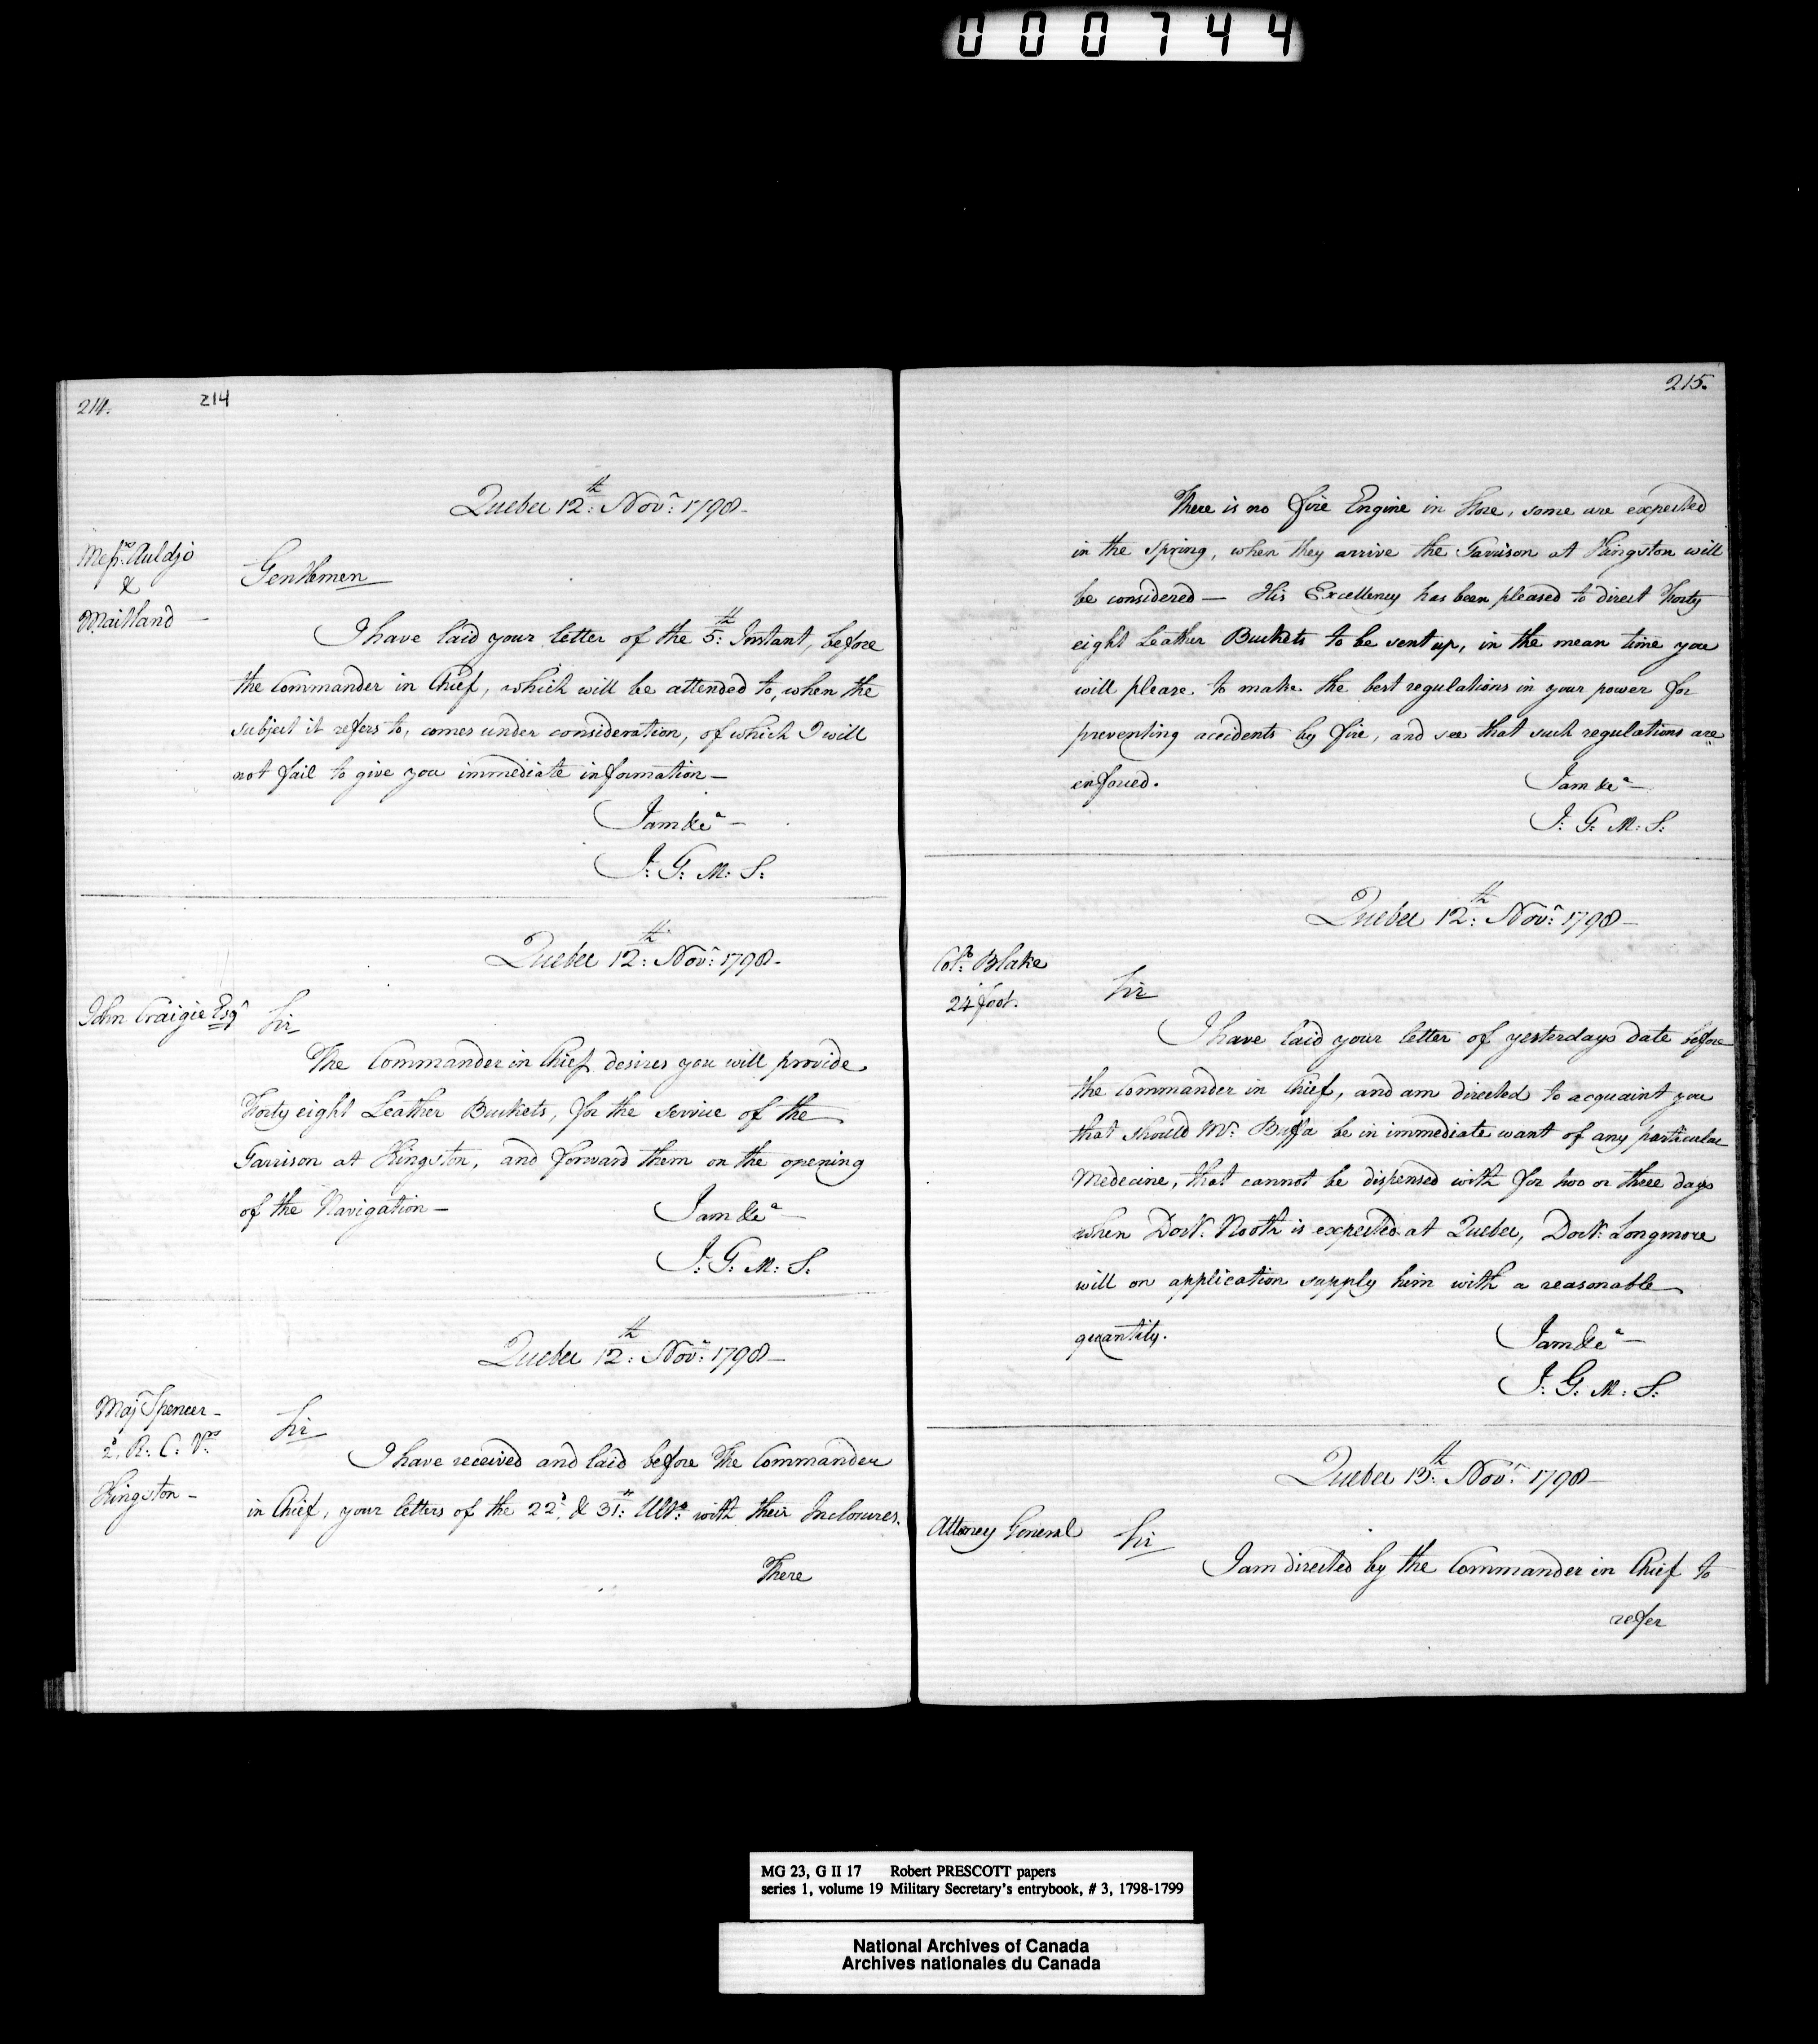 000744
214. 214
Quebec 12th: Novr: 1798-
Messrs: Auldjo
&
Maitland —
Gentlemen
I have laid your letter of the 5th: Instant, before
the Commander in Chief, which will be attended to, when the
subject it refers to, comes under consideration, of which I will
not fail to give you immediate information —
I am &ca —
J: G: M: S:
Quebec 12th: Novr: 1798-
John Craigie Esqr
Sir
The Commander in Chief desires you will provide
Forty eight Leather Buckets, for the service of the
Garrison at Kingston, and forward them on the opening
of the Navigation —
I am &ca —
J: G: M: S:
Quebec 12th: Novr: 1798 —
Majr Spencer —
2d, R: C: Vrs:
Kingston —
Sir
I have received and laid before The Commander
in Chief, your letters of the 22d: & 31st: Ulto: with their Inclosures.
There
215.
There is no fire Engine in Store, some are expected
in the Spring, when they arrive the Garrison at Kingston will
be considered — His Excellency has been pleased to direct Forty
eight Leather Buckets to be sent up, in the mean time you
will please to make the best regulations in your power for
preventing accidents by fire, and see that such regulations are
enforced.
I am &ca —
J: G: M: S:
Quebec 12th: Novr: 1798 —
Coll: Blake
24 foot.
Sir
I have laid your letter of yesterdays date before
the Commander in Chief, and am directed to acquaint you
that should Mr: Buffa be in immediate want of any particular
Medecine, that cannot be dispensed with for two or three days
when Doctr: Nooth is expected at Quebec, Doctr: Longmore
will on application supply him with a reasonable
quantity.
I am &ca —
J: G: M: S:
Quebec 13th: Novr: 1798 —
Attorney General
Sir
I am directed by the Commander in Chief to
refer
MG 23, G II 17 Robert PRESCOTT papers
series 1, volume 19 Military Secretary's entrybook, # 3, 1798-1799
National Archives of Canada
Archives nationales du Canada